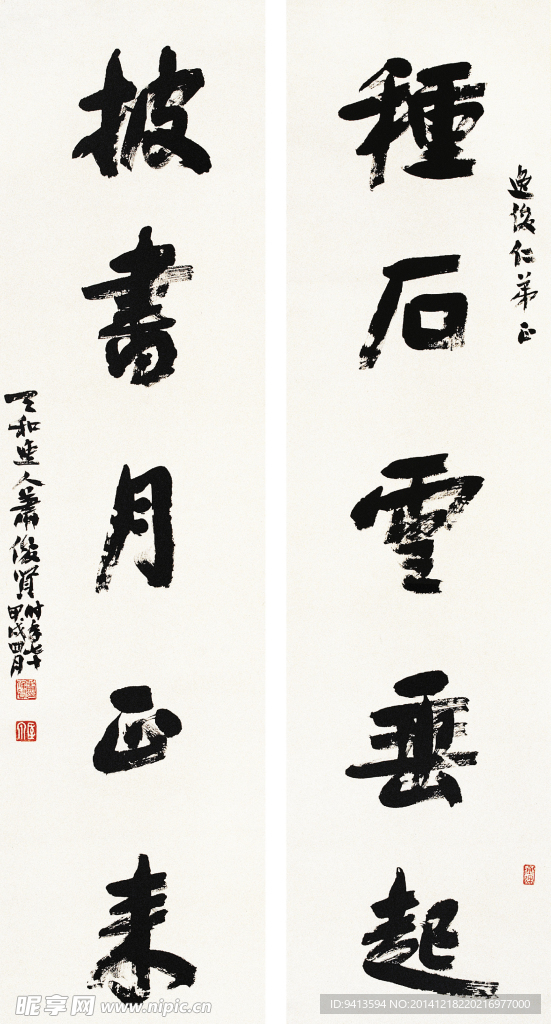 逸俊仁弟正
種石雲垂起
披書月正来
天和逸人蕭俊賢時年七十
甲戌四月
昵享网 www.nipic.cn
ID:9413594 NO:20141218220216977000